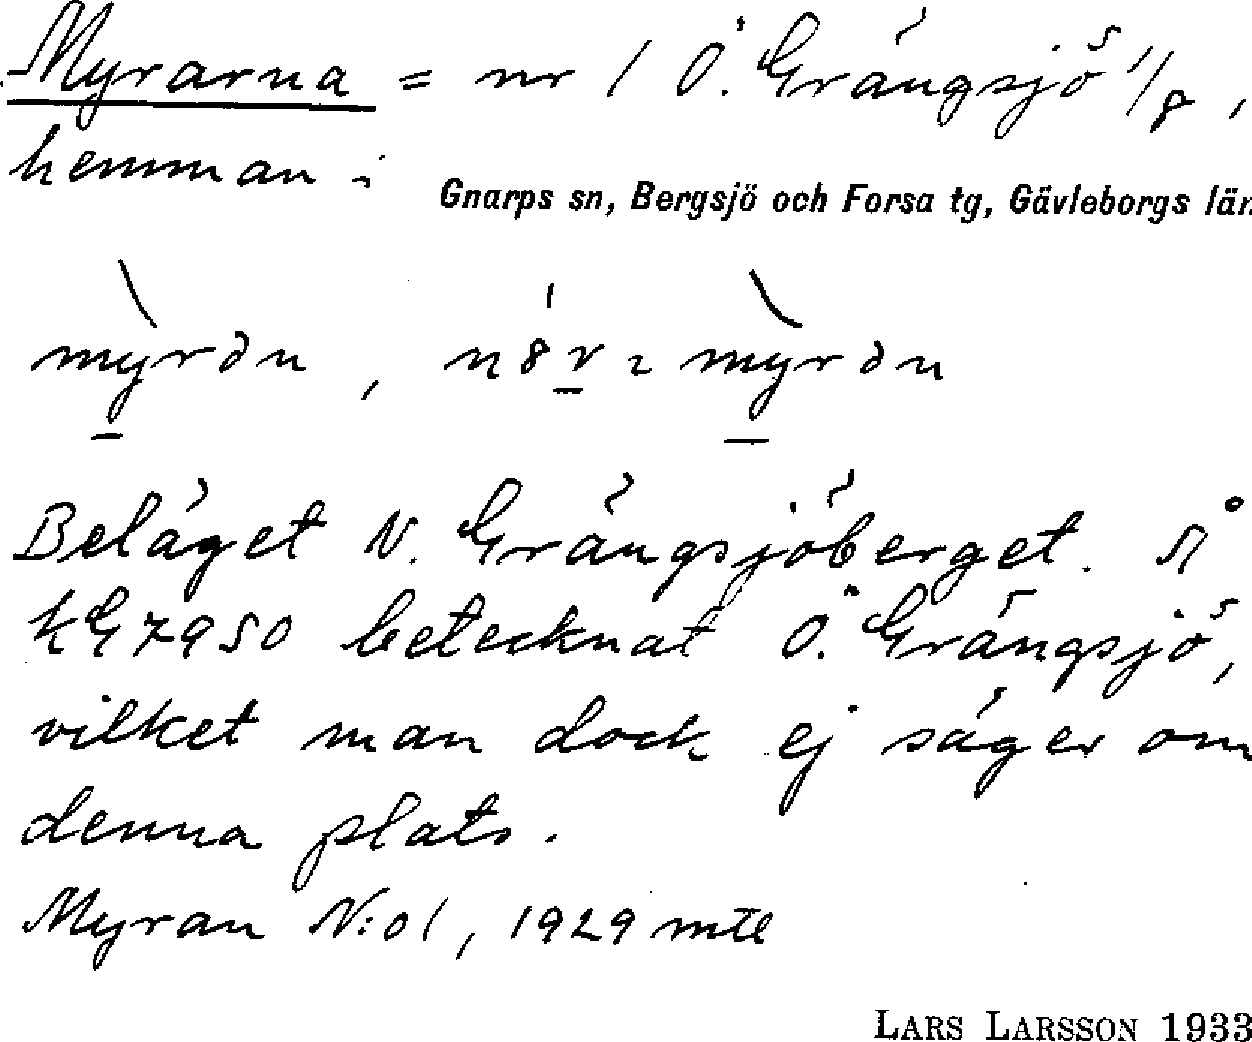 Myrarna = nr 1 Ö. Grängsjö 1/8,
hemman i Gnarps sn, Bergsjö och Forsa tg, Gävleborgs län
myrən, n8r 2 myrən
Beläget N. Grängsjöberget. Å
kG7950 betecknat Ö. Grängsjö,
vilket man dock ej säger om
denna plats.
Myran N:o 1, 1929 mtl
LARS LARSSON 1933